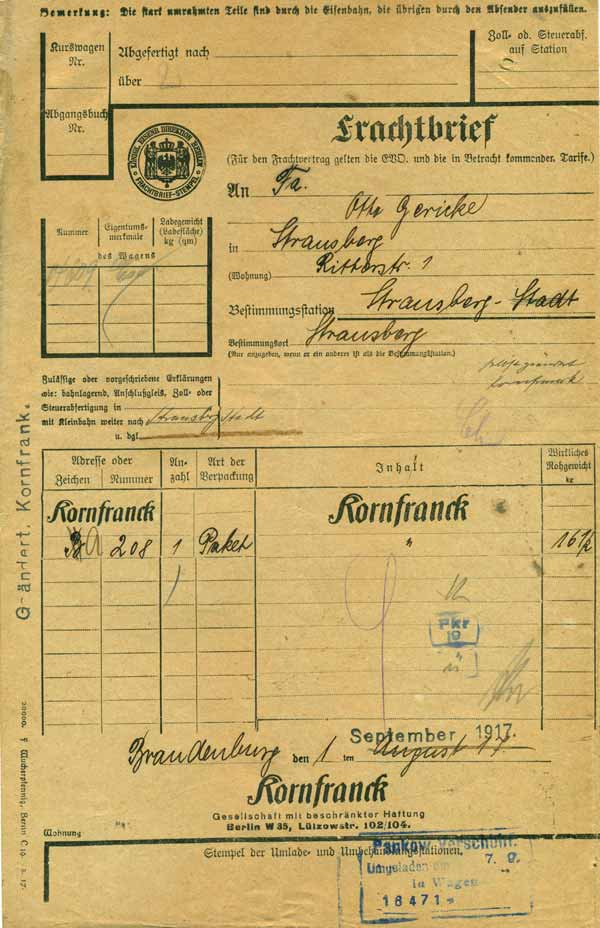 Bemerkung: Die stark umrahmten Teile sind durch die Eisenbahn, die übrigen durch den Absender auszufüllen.
Kurswagen
Nr.
Abgefertigt nach
über
Zoll- od. Steuerabf.
auf Station
Abgangsbuch
Nr.
KÖNIGL. EISENB. DIREKTION BERLIN
FRACHTBRIEF-STEMPEL
Frachtbrief
(Für den Frachtvertrag gelten die EVO. und die in Betracht kommenden Tarife.)
An Fa.
Otto Gericke
in Strausberg
Ritterstr. 1
(Wohnung)
Bestimmungsstation Strausberg-Stadt
Bestimmungsort Strausberg
(Nur anzugeben, wenn er ein anderer ist als die Bestimmungsstation.)
Nummer
Eigentums-
merkmale
Ladegewicht
(Ladefläche)
kg (qm)
des Wagens
Zulässige oder vorgeschriebene Erklärungen
wie: bahnlagernd, Anschlußgleis, Zoll- oder
Steuerabfertigung in
mit Kleinbahn weiter nach Strausbg Stadt
u. dgl.
selbst geändert
Kornfranck
G-ändert. Kornfrank.
Adresse oder
Zeichen Nummer
An-
zahl
Art der
Verpackung
Inhalt
Wirkliches
Rohgewicht
kg
Kornfranck Kornfranck
208 1 Paket " 16 1/2
Pkr
10
ü
September 1917.
Brandenburg den 1 ten August 17
Kornfranck
Gesellschaft mit beschränkter Haftung
Berlin W 35, Lützowstr. 102/104.
Wohnung:
Stempel der Umlade- und Umbehandlungsstationen.
Pankow Vorschönh.
Umgeladen am 7. 9.
in Wagen
16471